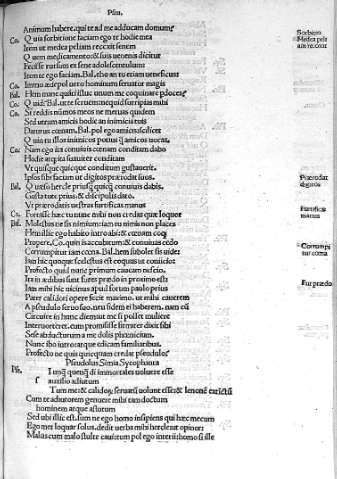 Pseu.
Animum habere. qui te ad me adducam domum
Co. Quia sorbitione faciam ego te hodie mea
Item ut medea peliam reccxit senem
Quem medicamento & suis uenenis dicitur
Fecisse rursus ex sene adolescentulum
Item te ego faciam. Bal. eho an tu etiam ueneficus
Co. Immo ædepol uero hominum seruator magis
Bal. Hem mane quanti illuc unum me coquinare pdoces
Co. Quid? Bal. ut te seruem nequid surripias mihi
Co. Si creddis nūmos meos ne meruas quidem
Sed utrum amicis hodie an inimicis tuis
Daturus cœnam. Bal. pol ego amicis scilicet
Co. Quin tu illos inimicos potius quam amicos uocas
Co. Nam ego ita conuiuis cœnam conditam dabo
Hodie atque ita suauitate condiam
Vt quisque quicque conditum gustauerit
Ipsos sibi faciam ut digitos prærodat suos.
Bal. Quæso hercle priusque quicquam conuiuis dabis.
Gusta tute prius & discipulis dato.
Vt prærodatis uestras furtificas manus
Co. Fortasse hæc tu nunc mihi non credas quæ loquor
Bal. Molestus ne sis nimium iam tinnis non places
Hem illic ego habito intro abi & cœnam coq
Propere. Co. quin is accubitum & conuiuas cedo
Corrumpitur iam cœna. Bal. hem subolem sis uide
Iam hic quoque scelestus est coquus ut conficiar
Profecto quid nunc primum caueam nescio.
Ita in ædibus sunt fures prædo in proximo est
Nam mihi hic uicinus apud forum paulo prius
Pater calidori opere fecit maximo. ut mihi cauerem
A pseudulo seruo suo. neu fidem ei haberem. nam eū
Circuire in hunc diem ut me si posset muliere
Interuorteret. eum promisisse firmiter dixit sibi
Sese abducturum a me dolis phœnicium.
Nunc ibo intro atque edicam familiaribus.
Profecto ne quis quicquam credat pseudulo
Pseudulus. Simia. Sycophanta
Ps. Si unquam quenquam di immortales uoluere esse
auxilio adiutum
Tum me & calidorum seruatum uolunt esse & lenonem extinctū
Cum te adiutorem genuere mihi tam doctum
hominem atque astutum
Sed ubi illic est. sum ne ego homo insipiens qui hæc mecum
Ego met loquar solus. dedit uerba mihi hercle ut opinor
Malus cum malo stulte caui tum pol ego interii: homo si ille
Sorbitio
Medea pelia
am recoxit
Prærodat
digitos
Furtificas
manus
Corrumpi
tur cœna
Fur prædo